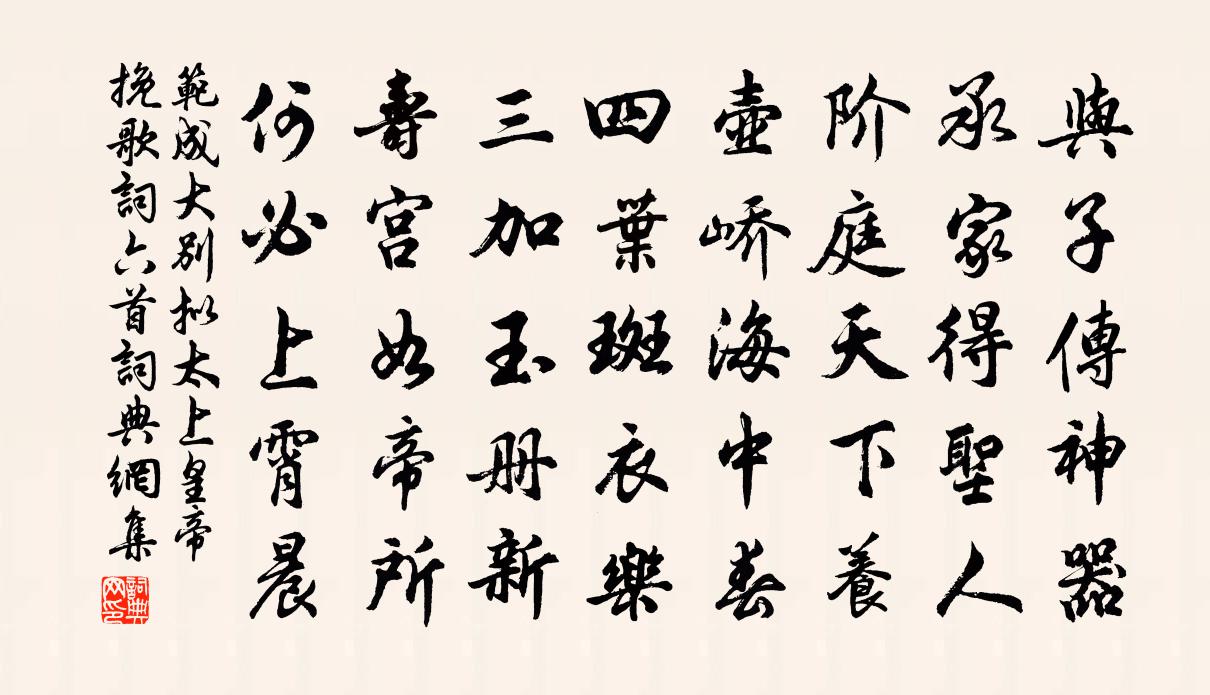 與子傳神器
承家得聖人
阶庭天下養
壺峤海中春
四葉斑衣樂
三加玉册新
壽宫如帝所
何必上霄晨
範成大別拟太上皇帝
挽歌詞六首詞典網集
詞典
网印